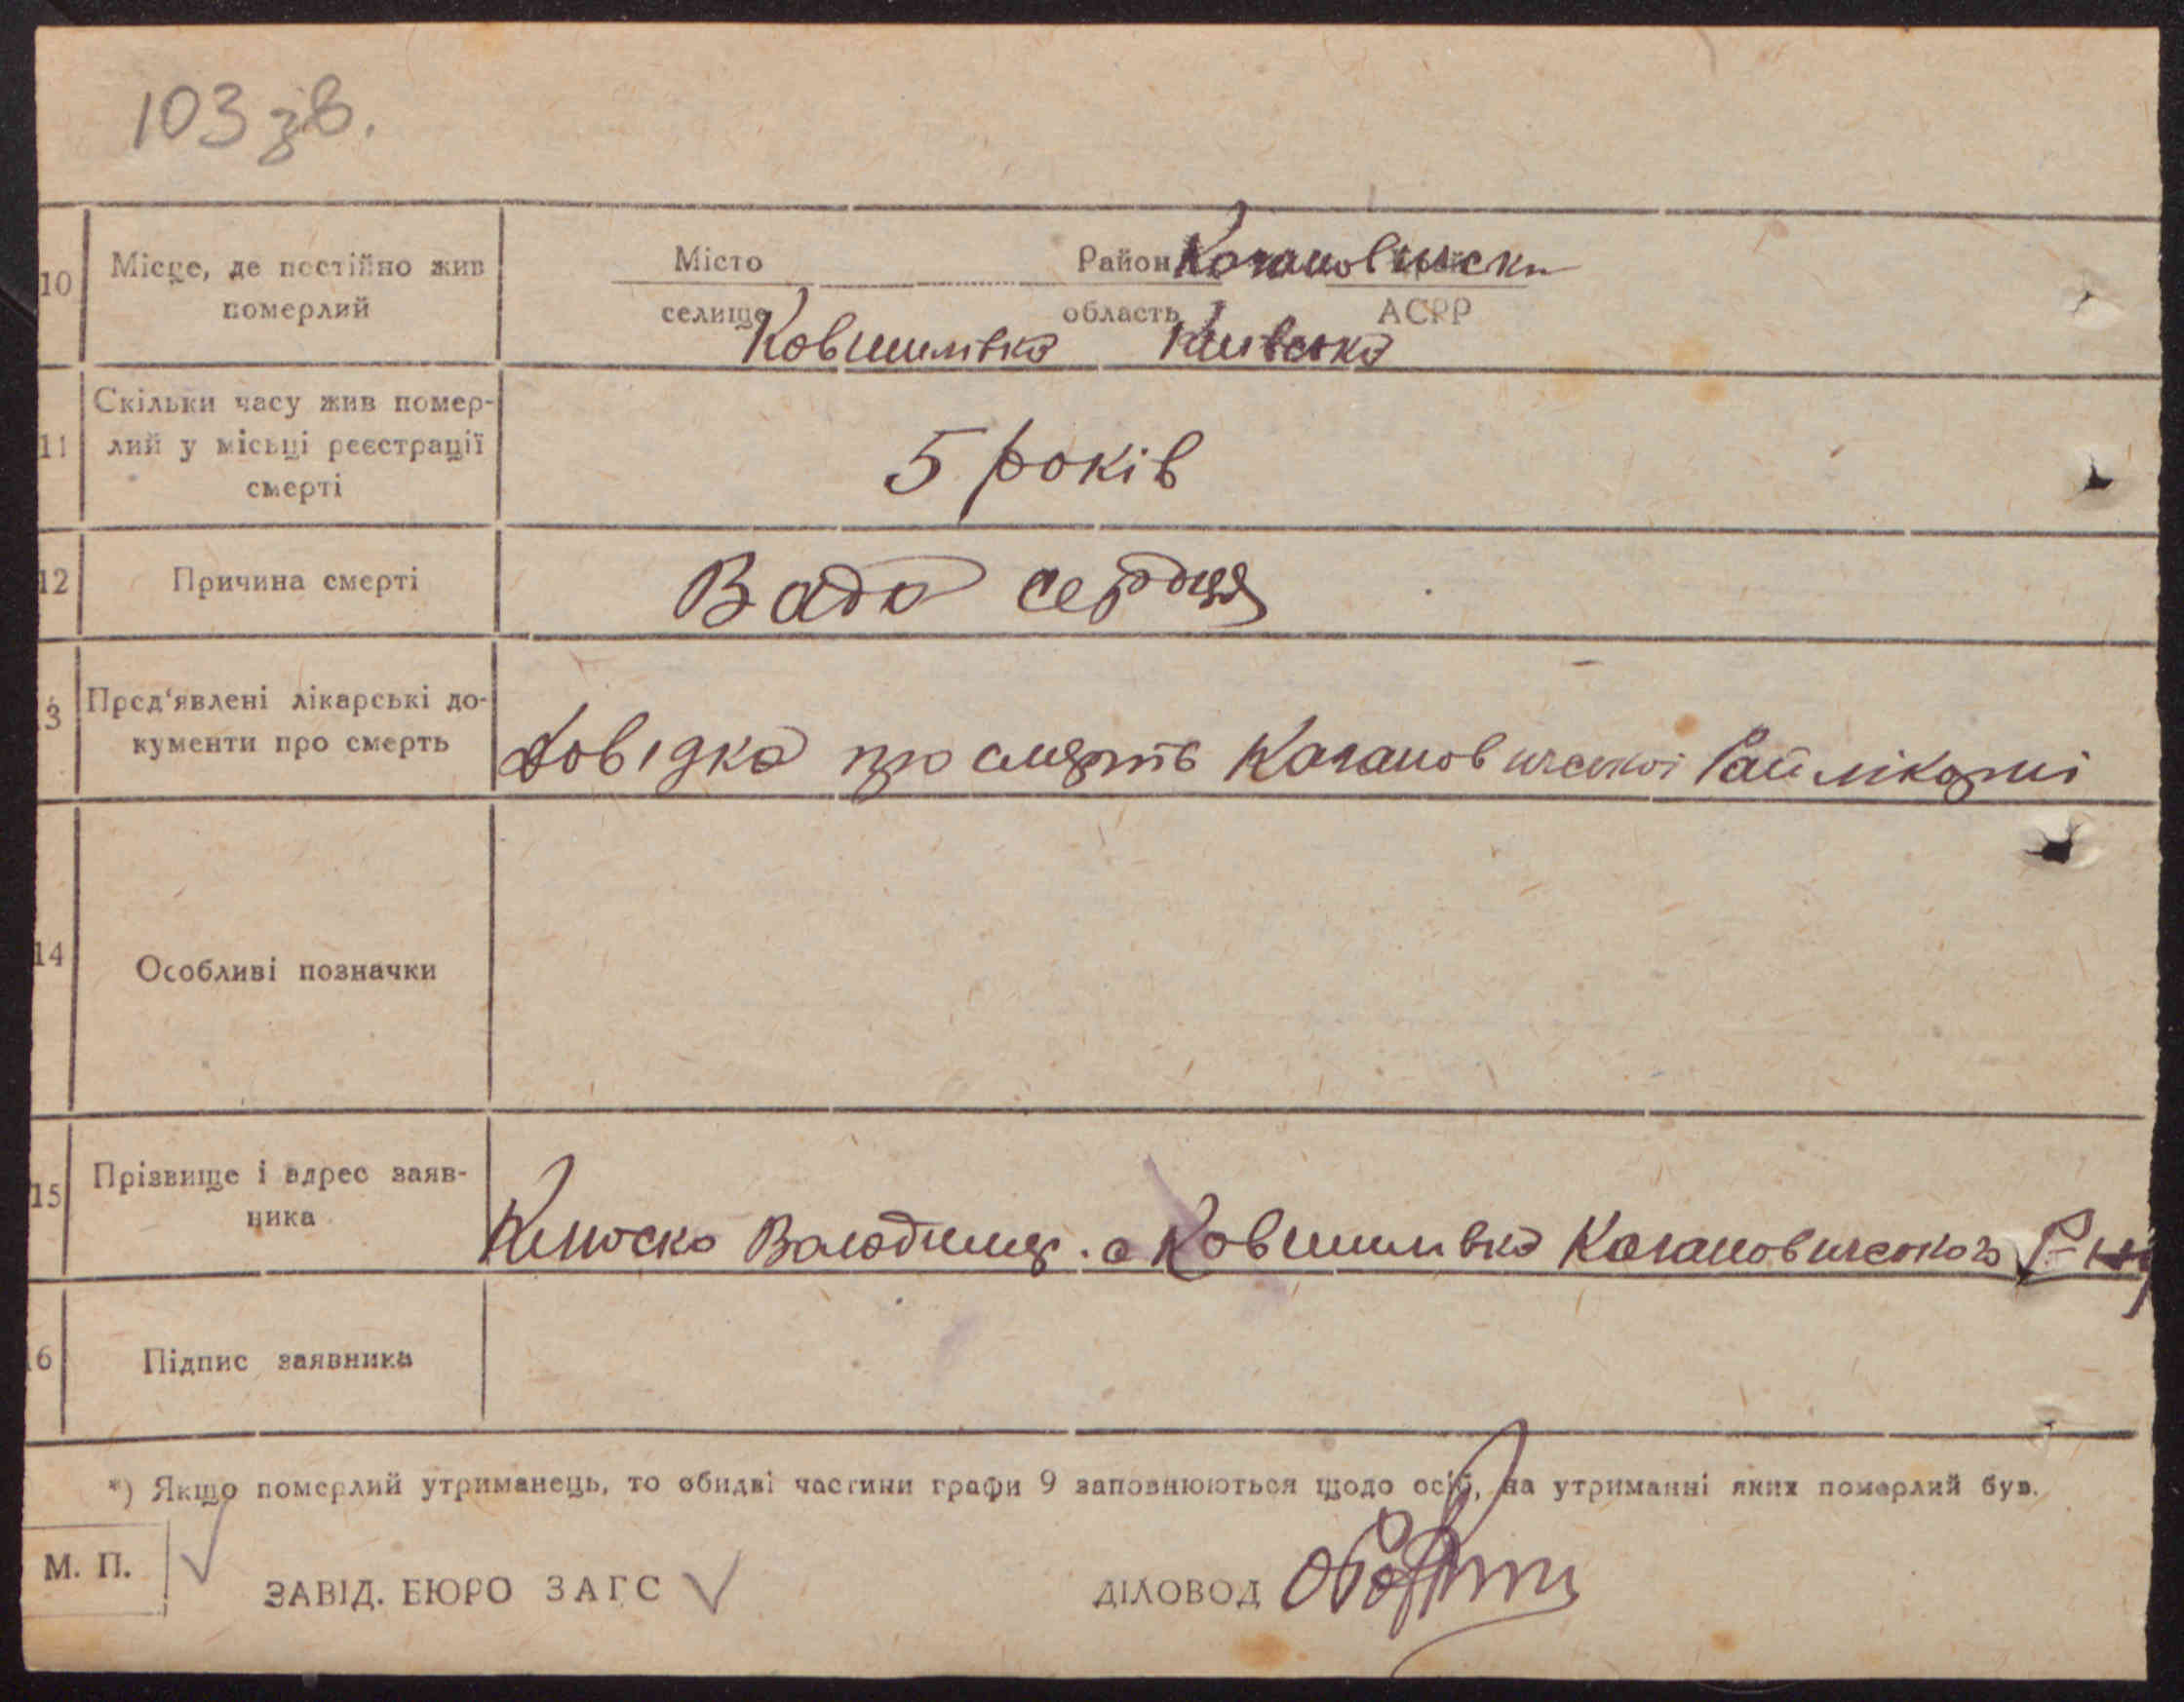 103 зв.
10 Місце, де постійно жив померлий
Місто Район Кагановическ
селище область АСРР
Ковшилівка Київська
11 Скільки часу жив помер-
лий у місьці реєстрації
смерті
5 років
12 Причина смерті Вада серця
3 Пред'явлені лікарські до-
кументи про смерть
Довідка про смерть Кагановичської Райлікарні
14 Особливі позначки
15 Прізвище і адрес заяв-
ника
Володимир. с Ковшилівка Кагановичского Р-ну
6 Підпис заявника
*) Якщо померлий утриманець, то обидві частини графи 9 заповнюються щодо осіб, на утриманні яких померлий був.
М. П.
ЗАВІД. БЮРО ЗАГС ДІЛОВОД